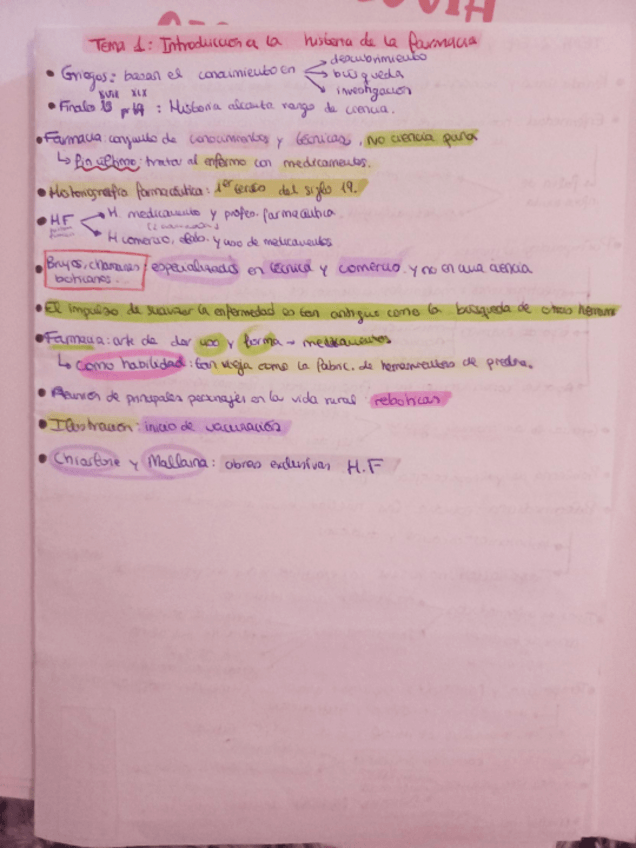 Tema 1: Introducción a la historia de la farmacia
• Griegos: basan el conocimiento en
descubrimiento
búsqueda
investigación
XVIII XIX
• Finales 18 pp 19: Historia alcanza rango de ciencia.
• Farmacia: conjunto de conocimientos y técnicas, no ciencia pura
↳ fin último: tratar al enfermo con medicamentos.
• Historiografía farmacéutica: 1er tercio del siglo 19.
• HF
H. medicamento y profes. farmacéutica
H comercio, y uso de medicamentos
• Brujos, chamanes boticarios... : especializados en técnica y comercio y no en una ciencia
• El impulso de suavizar la enfermedad es tan antiguo como la búsqueda de otras
• Farmacia: arte de dar uso y forma → medicamentos
↳ como habilidad: tan vieja como la fabric. de herramientas de piedra.
• Reunión de principales personajes en la vida rural: reboticas
• Ilustración: inicio de vacunación
• Chiarlone y Mallaina: obras exclusivas H.F